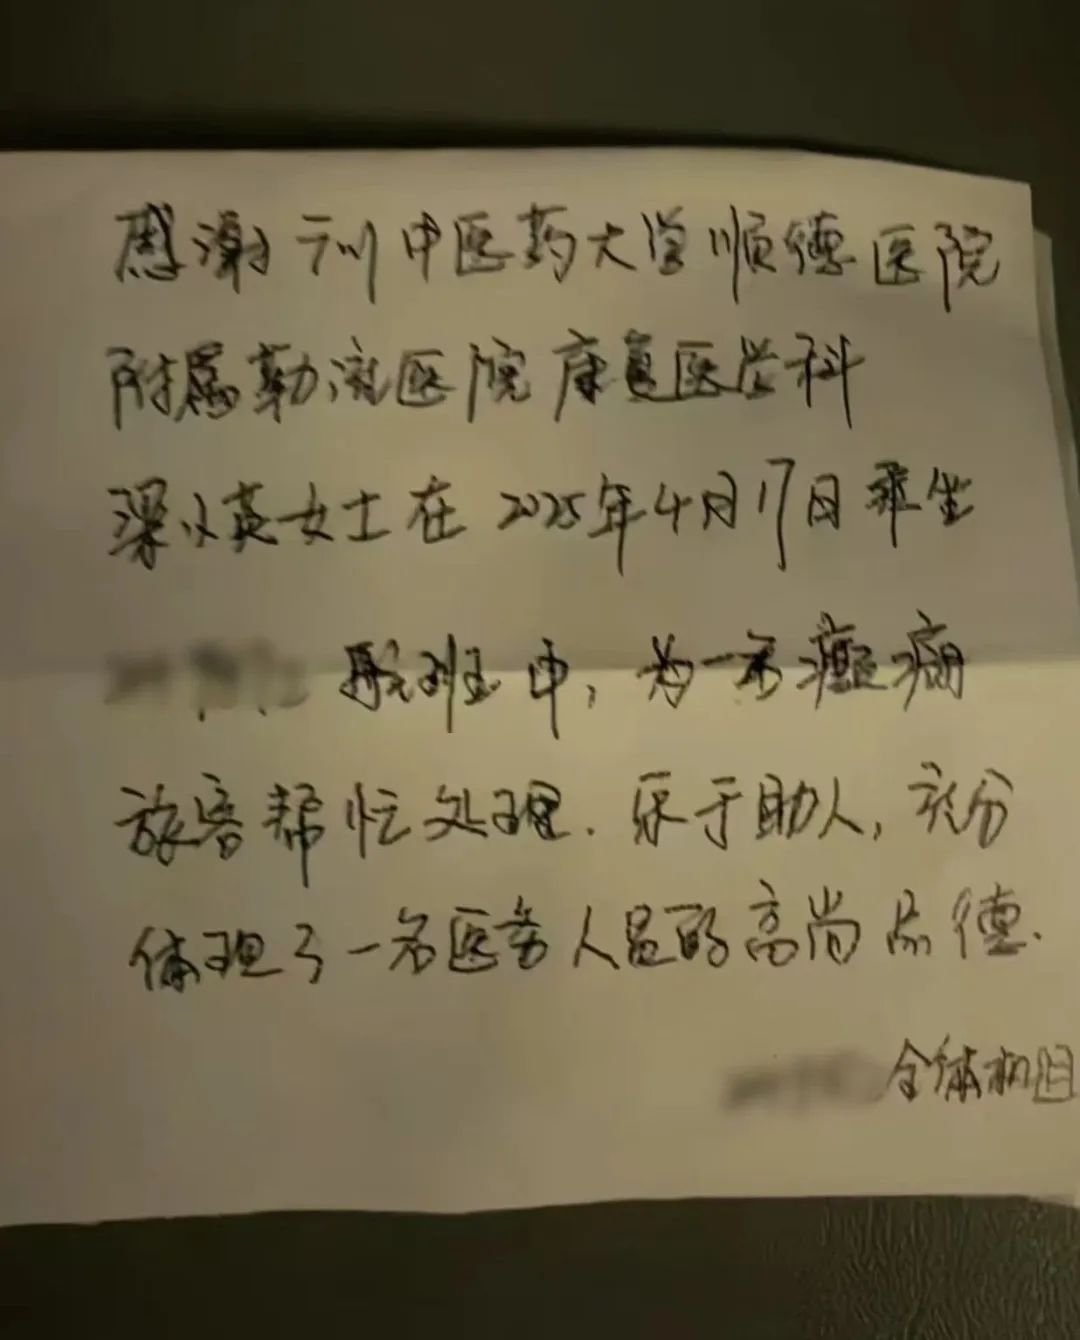 感谢广州中医药大学顺德医院
附属勒流医院康复医学科
梁小英女士在2025年4月17日乘坐
航班中，为一名癫痫
旅客帮忙处理．乐于助人，充分
体现了一名医务人员的高尚品德．
全体机组